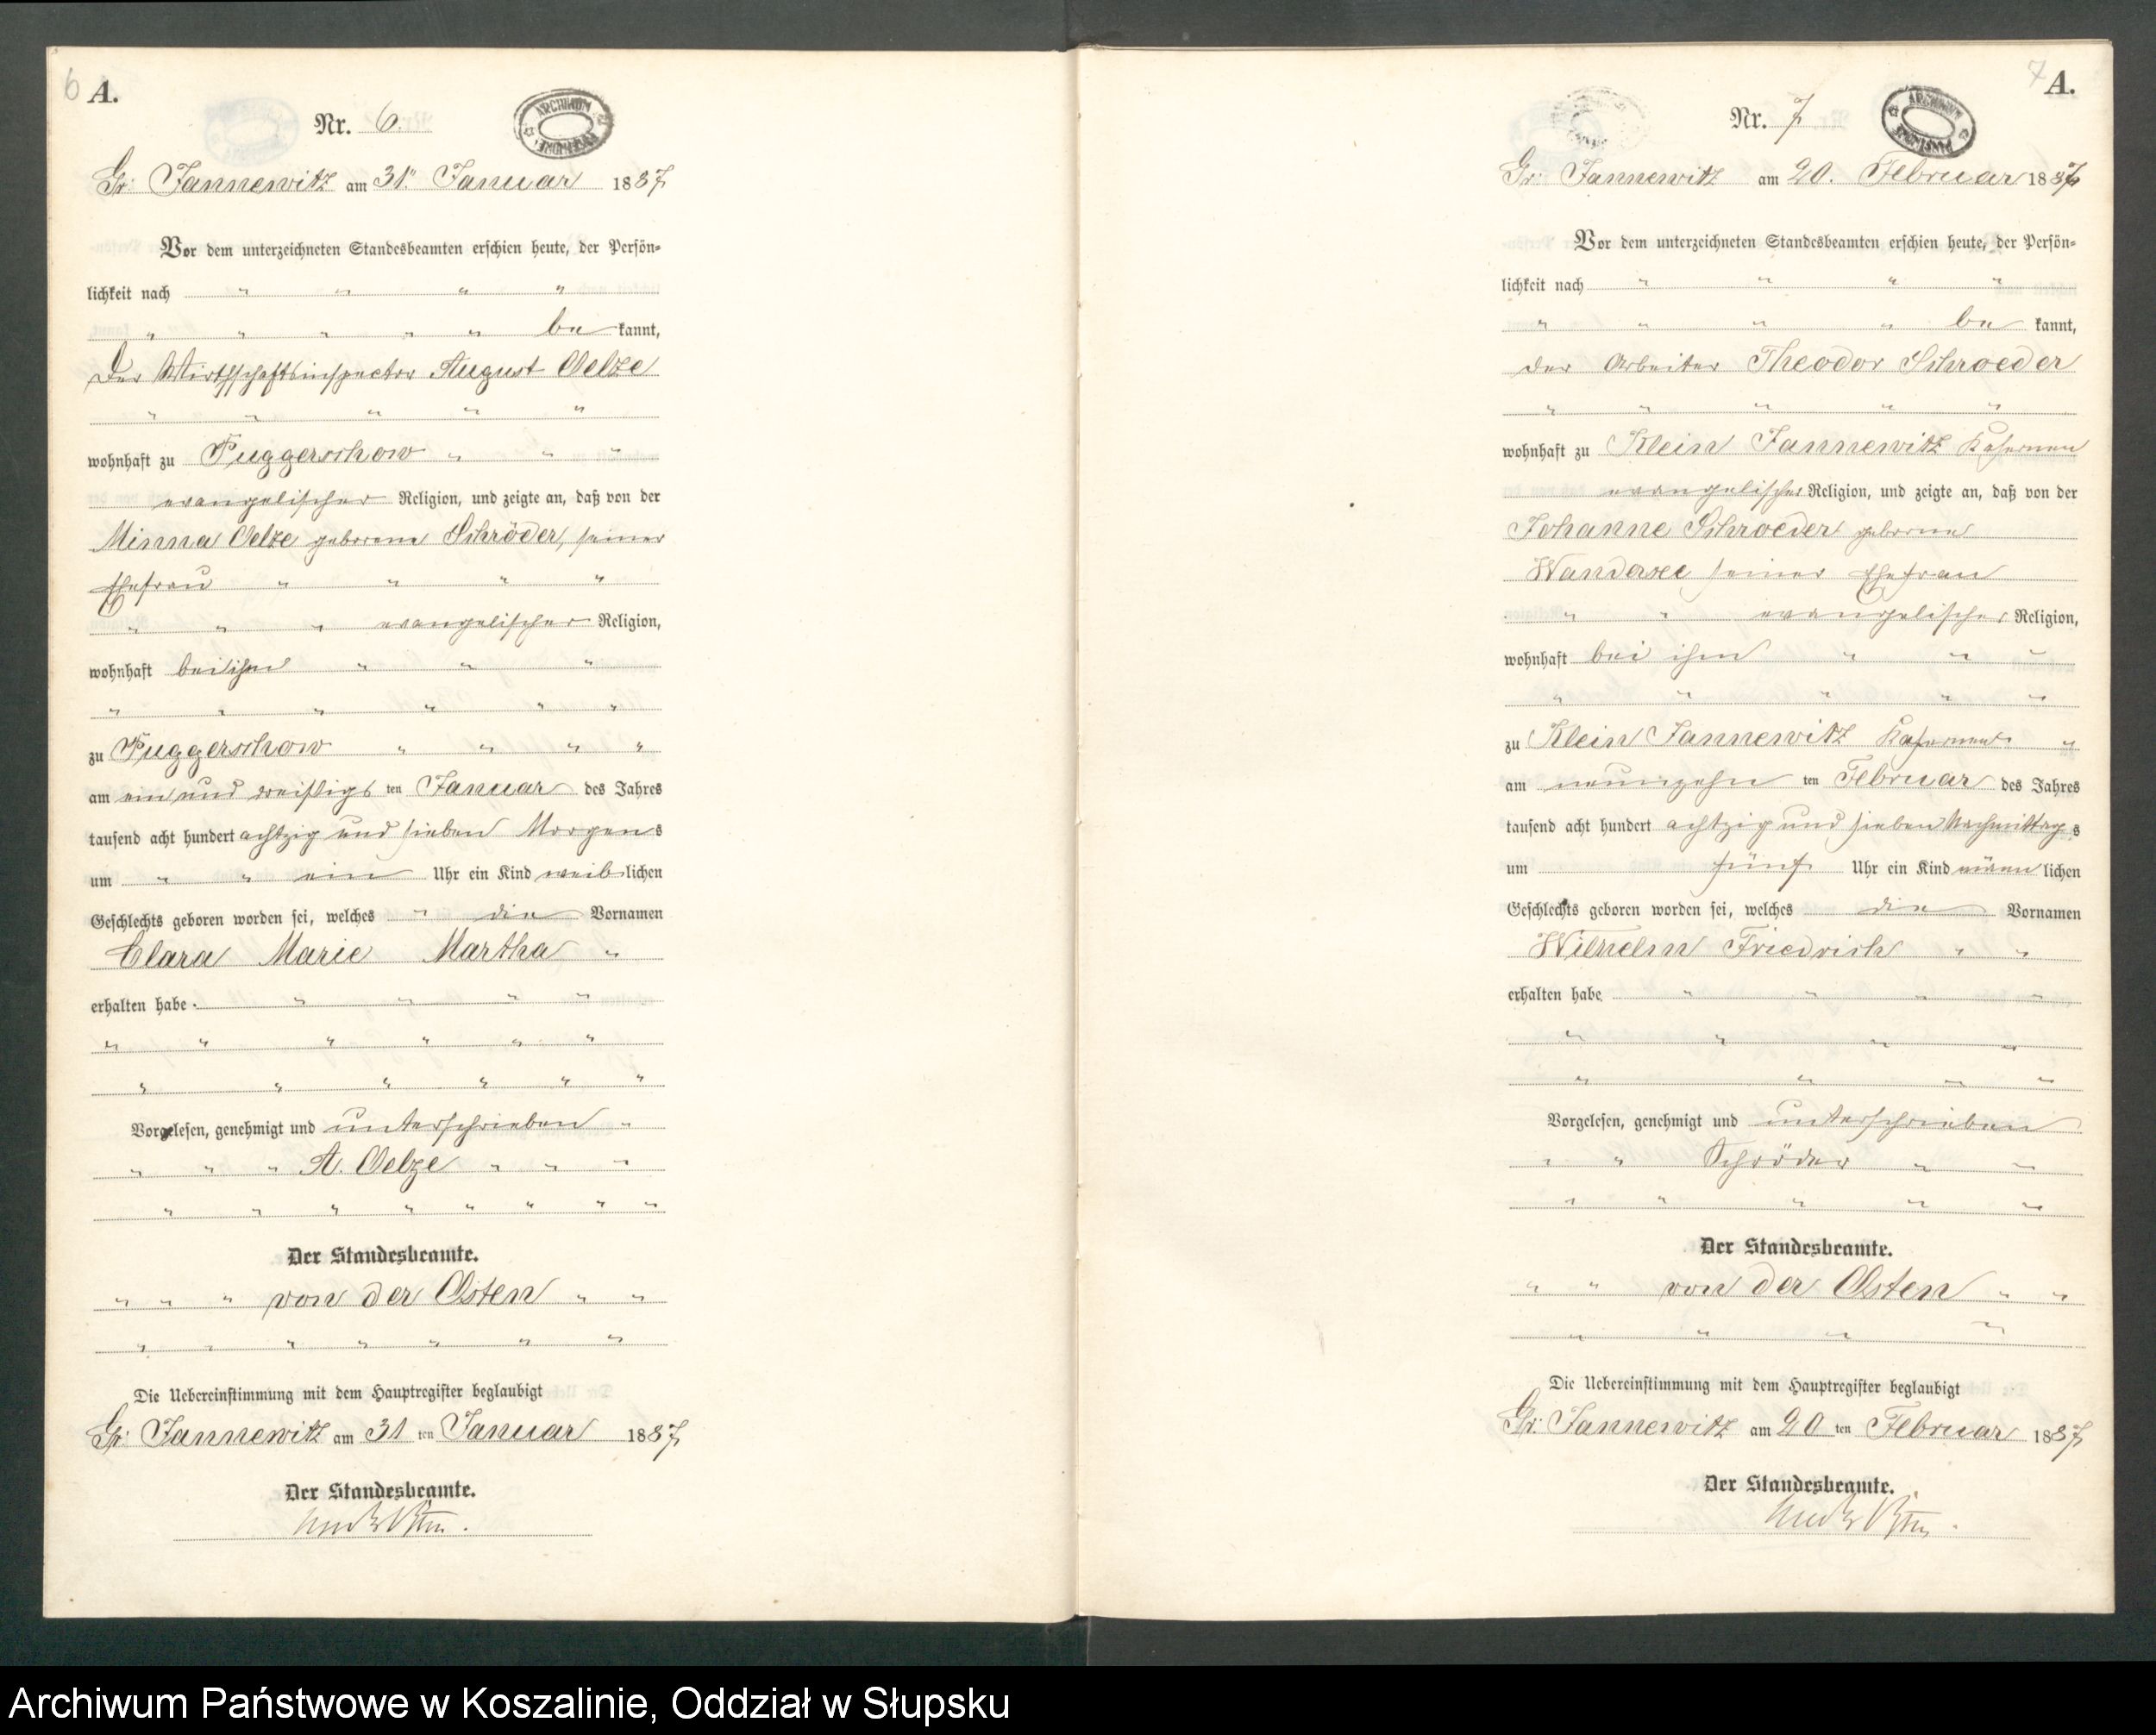 6
A.
Nr. 6.
ARCHIWUM PAŃSTWOWE
Gr. Jannewitz am 31. Januar 1887
Vor dem unterzeichneten Standesbeamten erschien heute, der Persön-
lichkeit nach " " " "
" " " " " be kannt,
Der Wirthschaftsinspector August Oelze
" " " " "
wohnhaft zu Puggerschow " " "
evangelischer Religion, und zeigte an, daß von der
Minna Oelze geborene Schröder, seiner
Ehefrau " " " "
" " " evangelischer Religion,
wohnhaft bei ihm " " "
" " " " " "
zu Puggerschow " " " "
am ein und dreißigsten Januar des Jahres
tausend acht hundert achtzig und sieben Morgens
um " " ein Uhr ein Kind weiblichen
Geschlechts geboren worden sei, welches " die Vornamen
Clara Marie Martha "
erhalten habe. " " " "
" " " " " "
" " " " " "
Vorgelesen, genehmigt und unterschrieben "
" " " A. Oelze " " "
" " " " " " " "
Der Standesbeamte.
" " " von der Osten " "
" " " " " " "
Die Uebereinstimmung mit dem Hauptregister beglaubigt
Gr. Jannewitz am 31 ten Januar 1887
Der Standesbeamte.
7
A.
Nr. 7
ARCHIWUM PAŃSTWOWE
Gr. Jannewitz am 20. Februar 1887
Vor dem unterzeichneten Standesbeamten erschien heute, der Persön-
lichkeit nach " " " "
" " " " be kannt,
der Arbeiter Theodor Schroeder
" " " " "
wohnhaft zu Klein Jannewitz Kasernen
evangelischer Religion, und zeigte an, daß von der
Johanne Schroeder geborne
Wandersee seiner Ehefrau
" " evangelischer Religion,
wohnhaft bei ihm " " "
" " " " "
zu Klein Jannewitz Kasernen "
am neunzehn ten Februar des Jahres
tausend acht hundert achtzig und sieben Nachmittags
um fünf Uhr ein Kind männlichen
Geschlechts geboren worden sei, welches die Vornamen
Wilhelm Friedrich " "
erhalten habe " " " "
" " " "
" " " "
Vorgelesen, genehmigt und unterschrieben
" " Schröder " "
" " " " "
Der Standesbeamte.
" " von der Osten " "
" " " "
Die Uebereinstimmung mit dem Hauptregister beglaubigt
Gr. Jannewitz am 20 ten Februar 1887
Der Standesbeamte.
Archiwum Państwowe w Koszalinie, Oddział w Słupsku